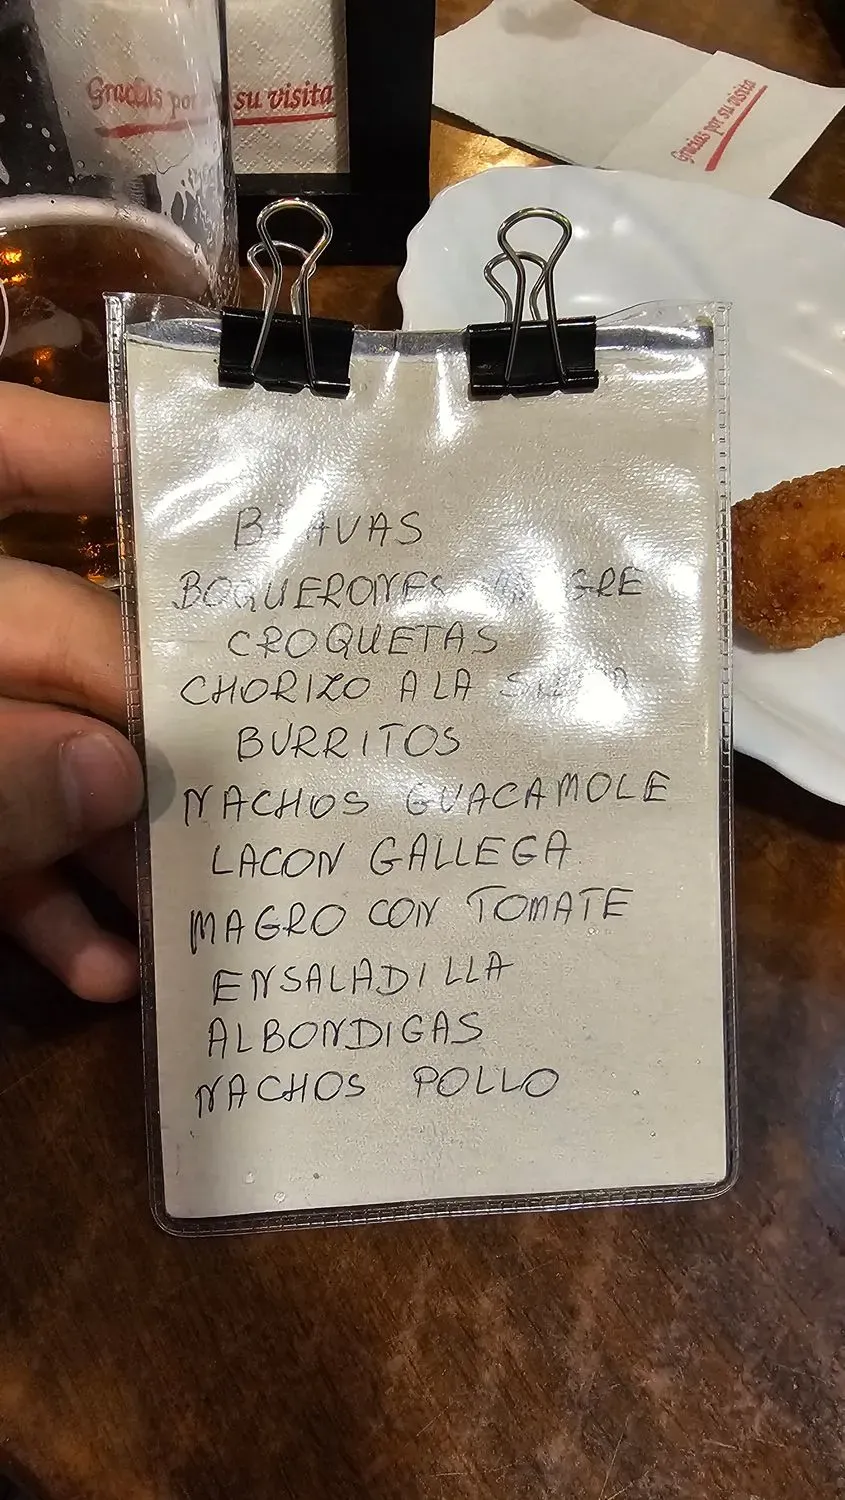 Gracias por su visita
Gracias por su visita
BRAVAS
BOQUERONES VINAGRE
CROQUETAS
CHORIZO A LA SIDRA
BURRITOS
NACHOS GUACAMOLE
LACON GALLEGA
MAGRO CON TOMATE
ENSALADILLA
ALBONDIGAS
NACHOS POLLO